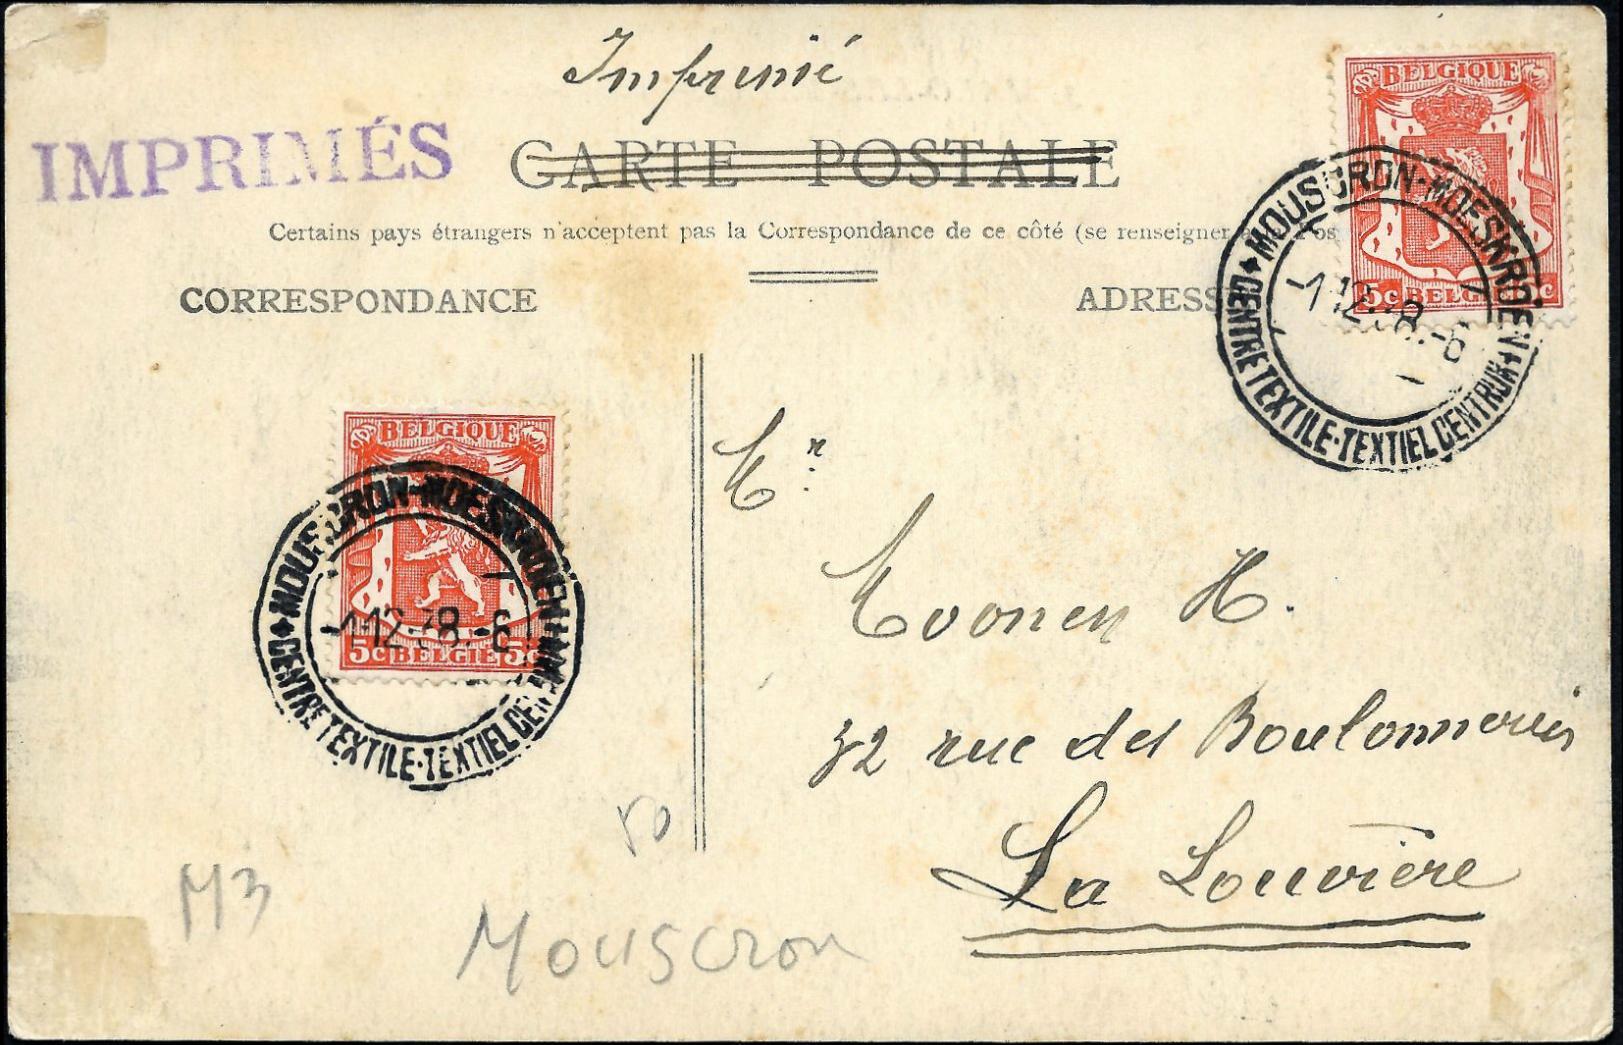 Imprimé
IMPRIMÉS
CARTE POSTALE
Certains pays étrangers n'acceptent pas la Correspondance de ce côté (se renseigner
CORRESPONDANCE
ADRESSE
BELGIQUE
5c BELGIE 5c
MOUSCRON-MOESKROEN
-1 12.38.-6
CENTRE TEXTILE-TEXTIEL CENTRUM
BELGIQUE
5c BELGIE 5c
MOUSCRON-MOESKROEN
-1 12.38.-6
CENTRE TEXTILE-TEXTIEL CENTRUM
Mr
Moonen H.
32 rue des Boulonneries
La Louvière
50
M3
Mouscron